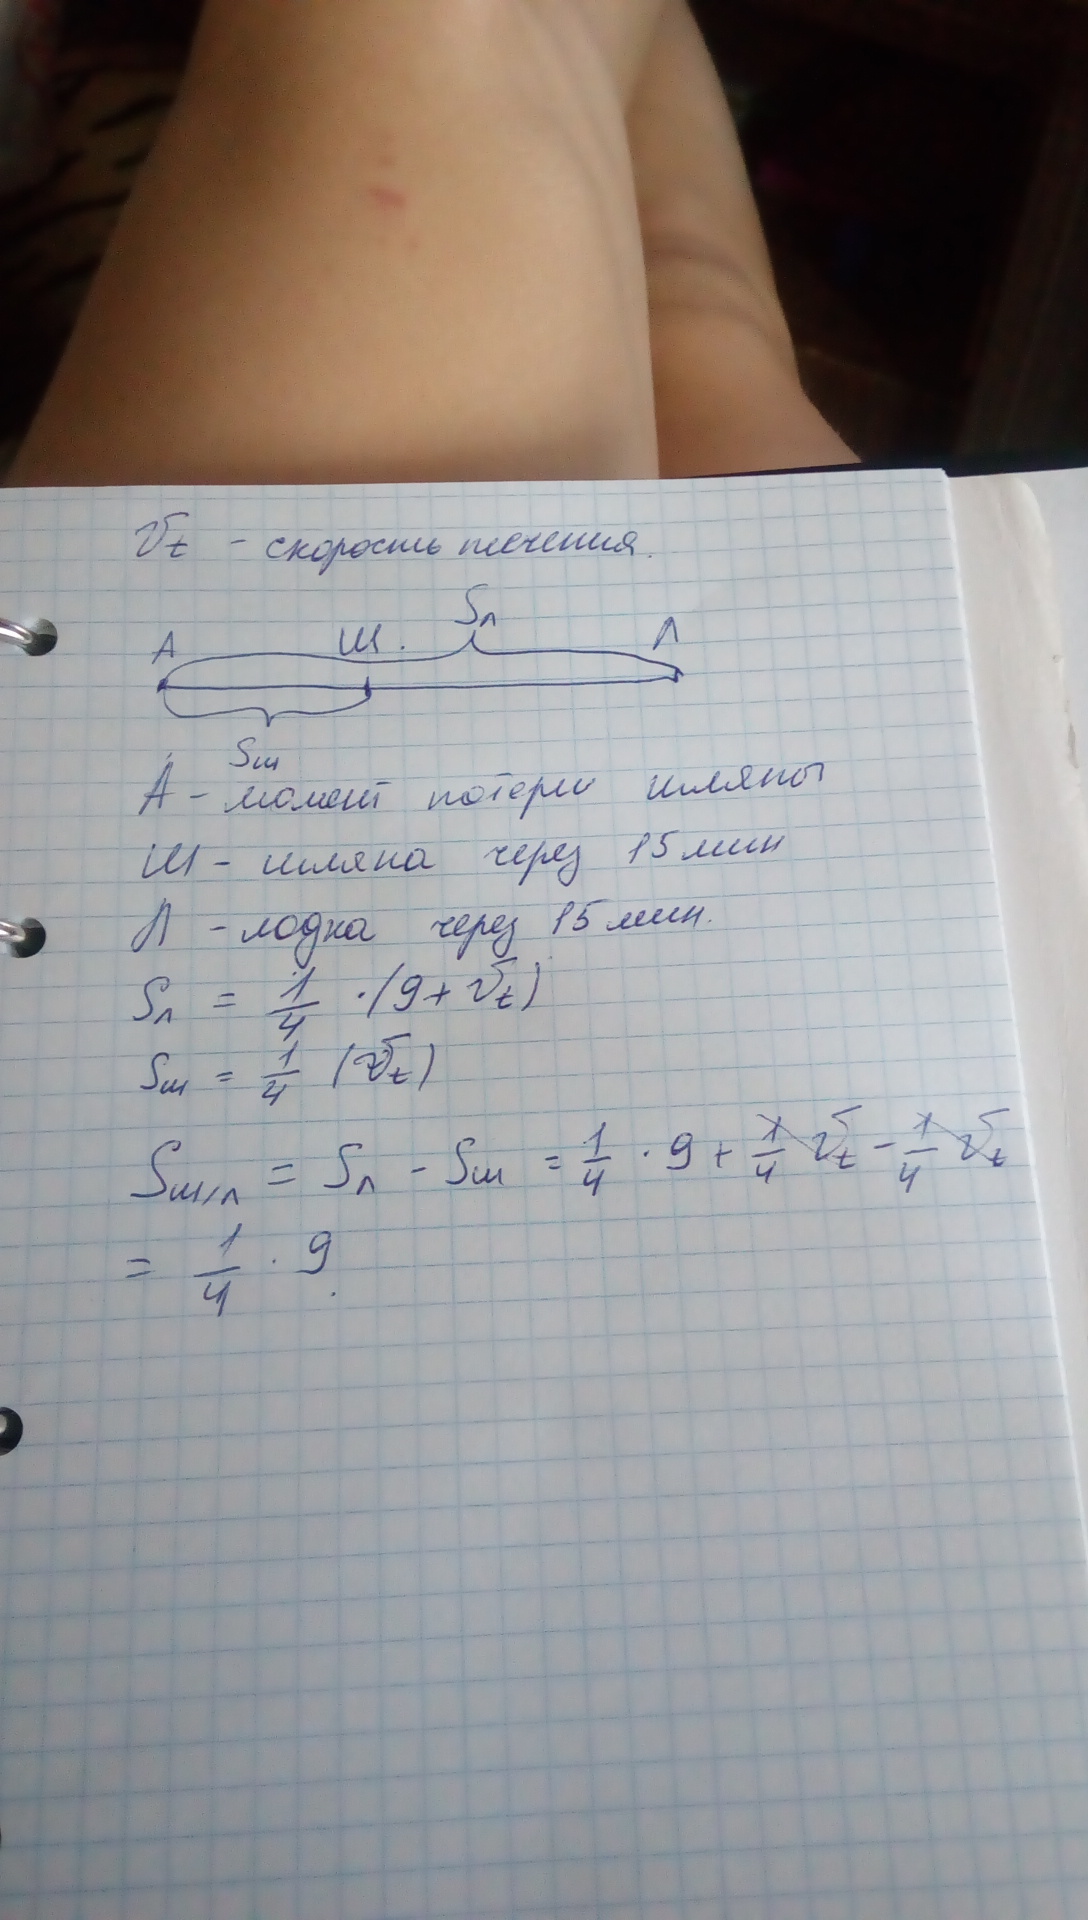 Vt - скорость течения.
Sл
А Ш. Л
Sш
А - момент потери шляпы
Ш - шляпа через 15 мин
Л - лодка через 15 мин.
Sл = 1/4 · (9 + Vt)
Sш = 1/4 (Vt)
Sш/л = Sл - Sш = 1/4 · 9 + 1/4 Vt - 1/4 Vt
= 1/4 · 9.